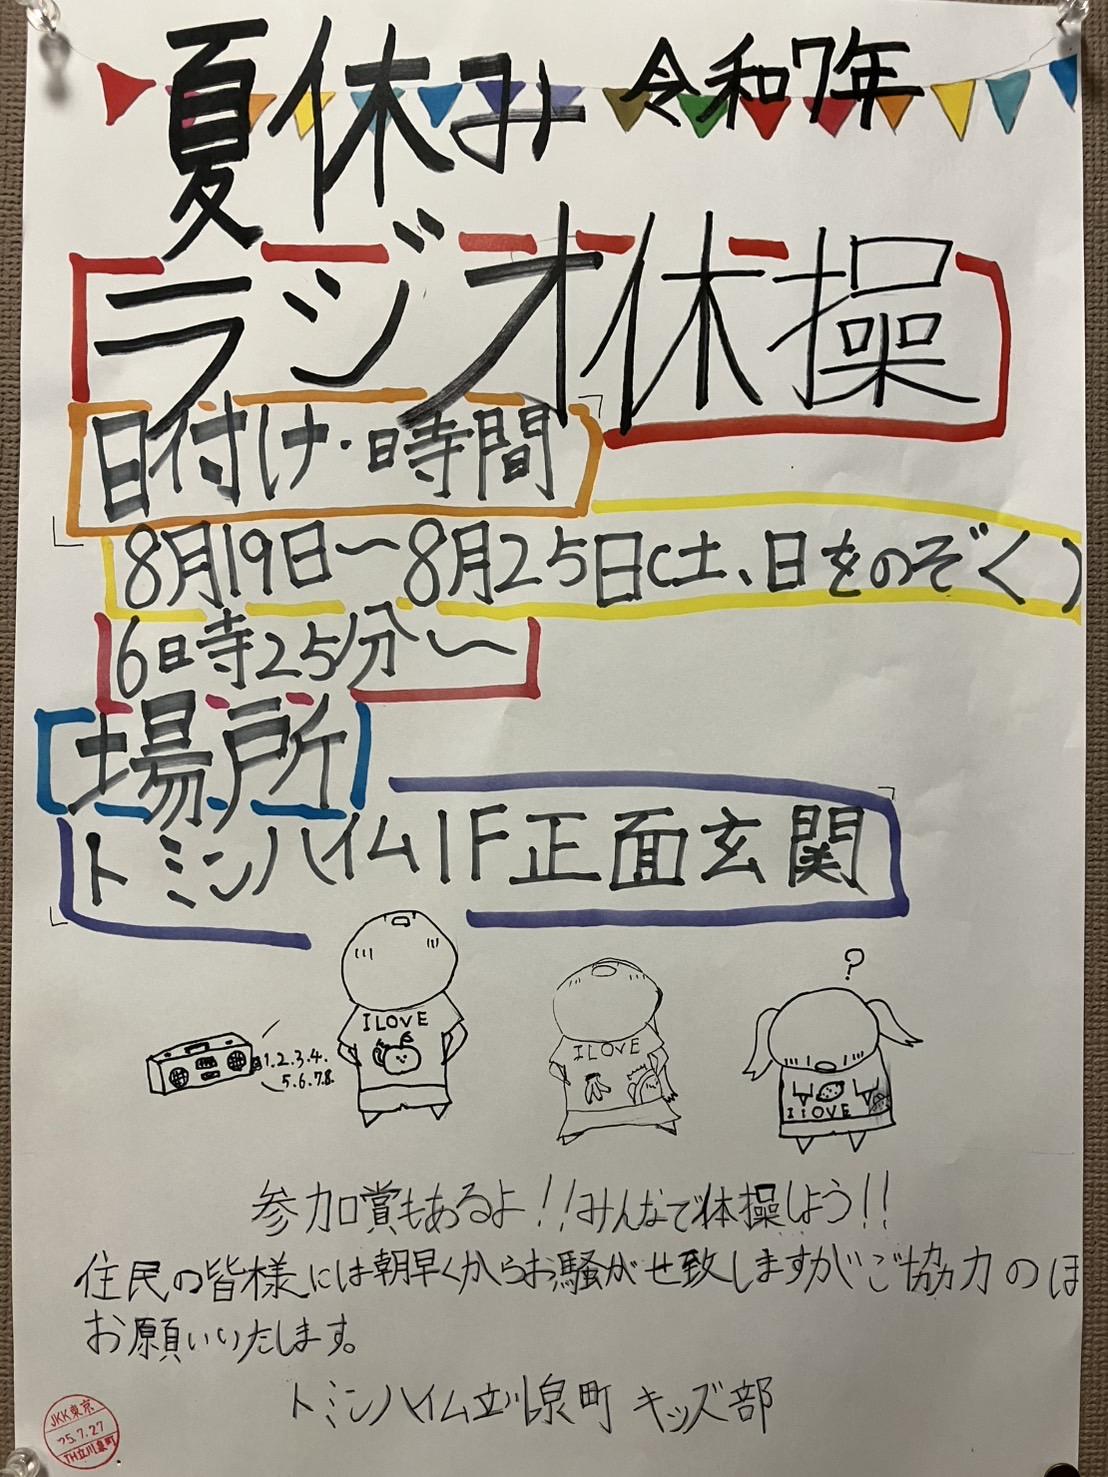 夏休み 令和7年
ラジオ休操
日付け・時間
8月19日〜8月25日(土、日をのぞく)
6時25分〜
場所
トミンハイム1F正面玄関
?
I LOVE
I LOVE
I LOVE
1.2.3.4.
5.6.7.8.
参加賞もあるよ!!みんなで体操しよう!!
住民の皆様には朝早くからお騒がせ致しますがご協力のほ
お願いいたします。
トミンハイム立川泉町 キッズ部
JKK東京
'25.7.27
TH立川泉町